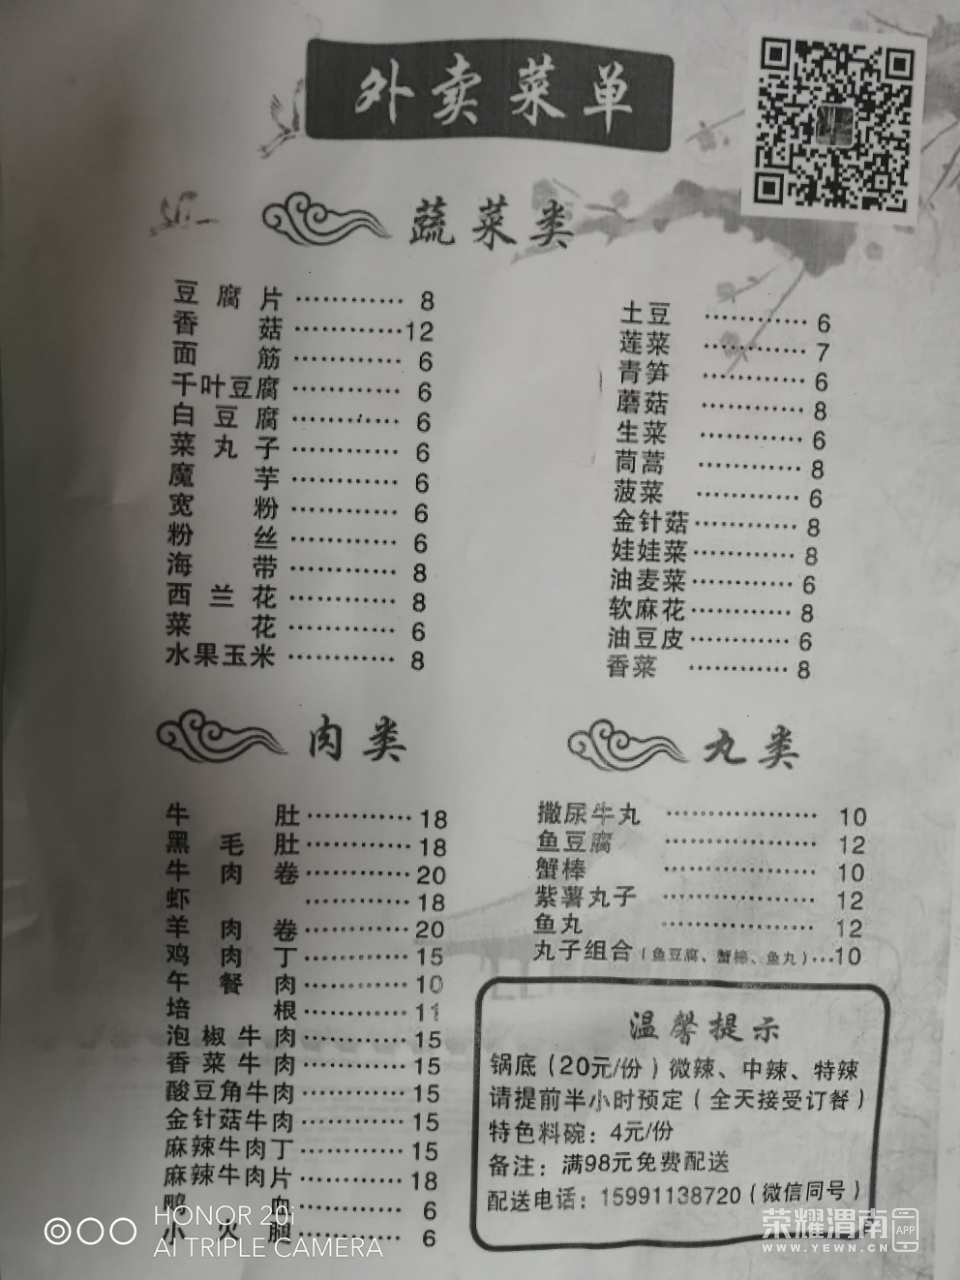 外卖菜单
蔬菜类
豆腐片…………8
香菇…………12
面筋…………6
千叶豆腐…………6
白豆腐…………6
菜丸子…………6
魔芋…………6
宽粉…………6
粉丝…………6
海带…………8
西兰花…………8
菜花…………6
水果玉米…………8
土豆…………6
莲菜…………7
青笋…………6
蘑菇…………8
生菜…………6
茼蒿…………8
菠菜…………6
金针菇…………8
娃娃菜…………8
油麦菜…………6
软麻花…………8
油豆皮…………6
香菜…………8
肉类
牛肚…………18
黑毛肚…………18
牛肉卷…………20
虾…………18
羊肉卷…………20
鸡肉丁…………15
午餐肉…………10
培根…………11
泡椒牛肉…………15
香菜牛肉…………15
酸豆角牛肉…………15
金针菇牛肉…………15
麻辣牛肉丁…………15
麻辣牛肉片…………18
鸭血…………6
小火腿…………6
丸类
撒尿牛丸………………10
鱼豆腐………………12
蟹棒………………10
紫薯丸子………………12
鱼丸………………12
丸子组合(鱼豆腐、蟹棒、鱼丸)…10
温馨提示
锅底(20元/份)微辣、中辣、特辣
请提前半小时预定(全天接受订餐)
特色料碗:4元/份
备注:满98元免费配送
配送电话:15991138720(微信同号)
HONOR 20i
AI TRIPLE CAMERA
荣耀渭南APP
WWW.YEWN.CN